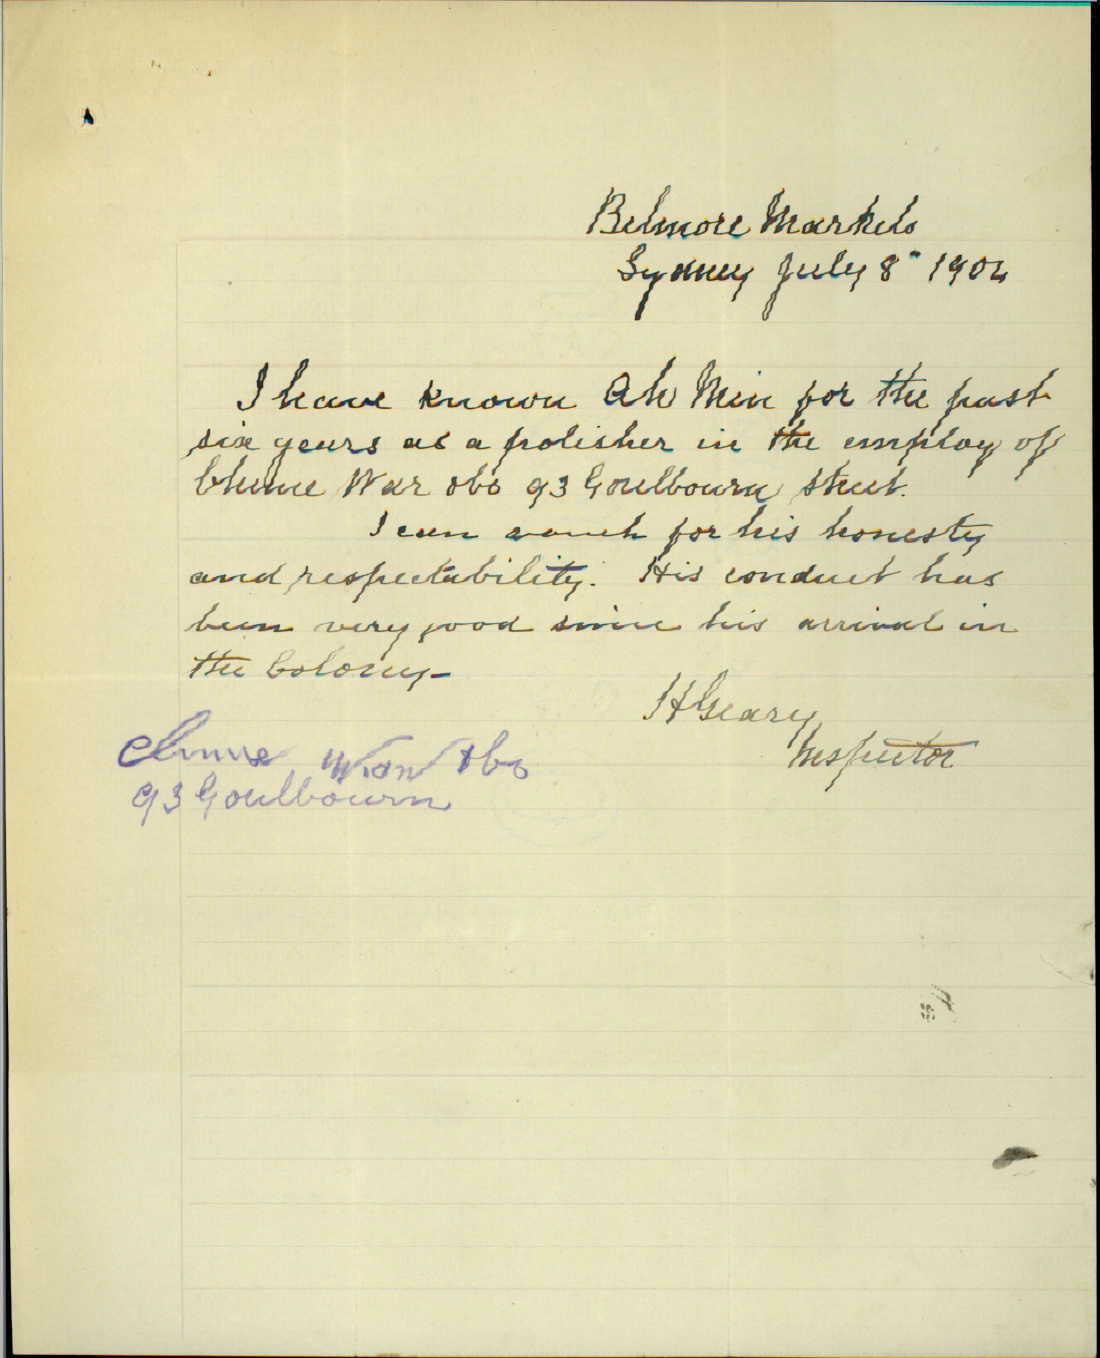 Belmore Markets
Sydney July 8" 1904
I have known Ah Min for the past
six years as a polisher in the employ of
War 93 Goulbourn street.
I can vouch for his honesty
and respectability. His conduct has
been very good since his arrival in
the Colony-
H Geary
Inspector
93 Goulbourn